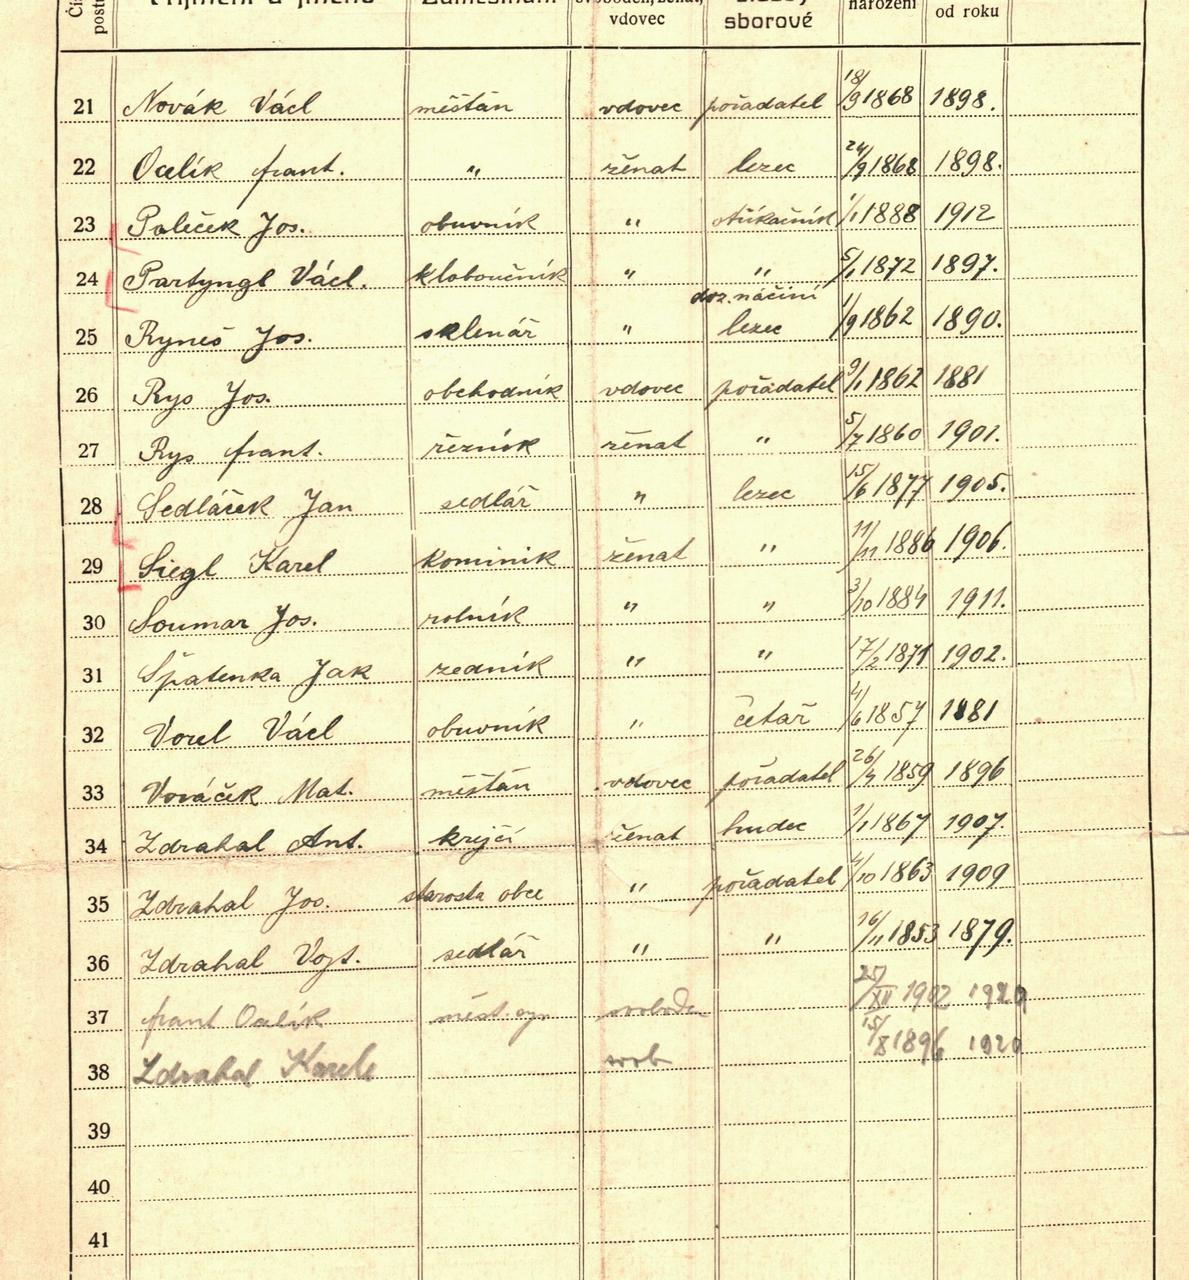 vdovec sborové narození od roku
21 Novák Václ měšťan vdovec pořadatel 18/9 1868 1898.
22 Ocelík frant. " ženat lezec 24/9 1868 1898.
23 Paleček Jos. obuvník " stříkačník 1/1 1888 1912
24 Partyngl Václ. kloboučník " " 5/1 1872 1897.
doz. náčiní
25 Ryneš Jos. sklenář " lezec 1/9 1862 1890.
26 Rys Jos. obchodník vdovec pořadatel 9/1 1862 1881
27 Rys frant. řezník ženat " 5/7 1860 1901.
28 Sedláček Jan sedlář " lezec 15/6 1877 1905.
29 Siegl Karel kominik ženat " 11/11 1886 1906.
30 Soumar Jos. rolník " " 3/10 1884 1911.
31 Špatenka Jak zedník " " 17/2 1871 1902.
32 Vorel Václ obuvník " četař 4/6 1857 1881
33 Vováček Mat. měšťan vdovec pořadatel 26/4 1859 1896
34 Zdrahal Ant. krejčí ženat hudec 1/1 1867 1907.
35 Zdrahal Jos. starosta obce " pořadatel 4/10 1863 1909
36 Zdrahal Vojt. sedlář " " 16/11 1853 1879.
37 frant Ocelík měst. syn svoboden 25/XII 1902 1920
38 Zdrahal Karel svob 15/X 1896 1920
39
40
41